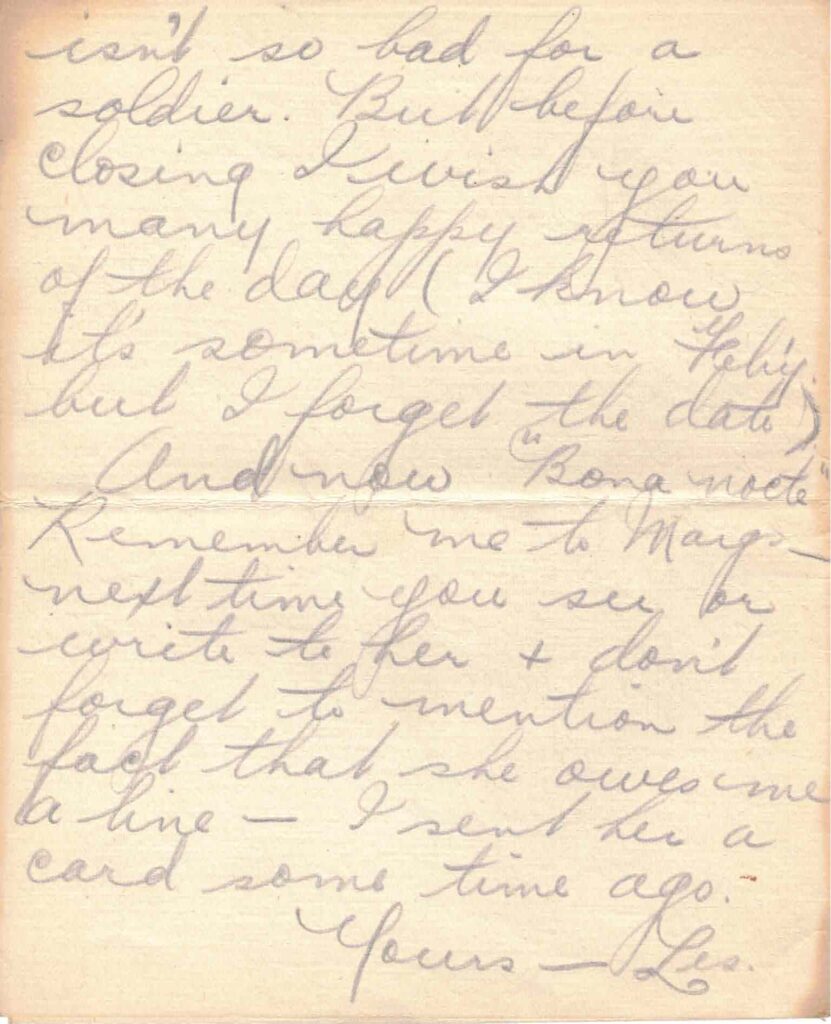 isn't so bad for a
soldier. But before
closing I wish you
many happy returns
of the day ( I know
it's sometime in Feb'y.
but I forget the date )
And now "Bona nocte"
Remember me to Marg. —
next time you see or
write to her + don't
forget to mention the
fact that she owes me
a line — I sent her a
card some time ago.
Yours — Les.